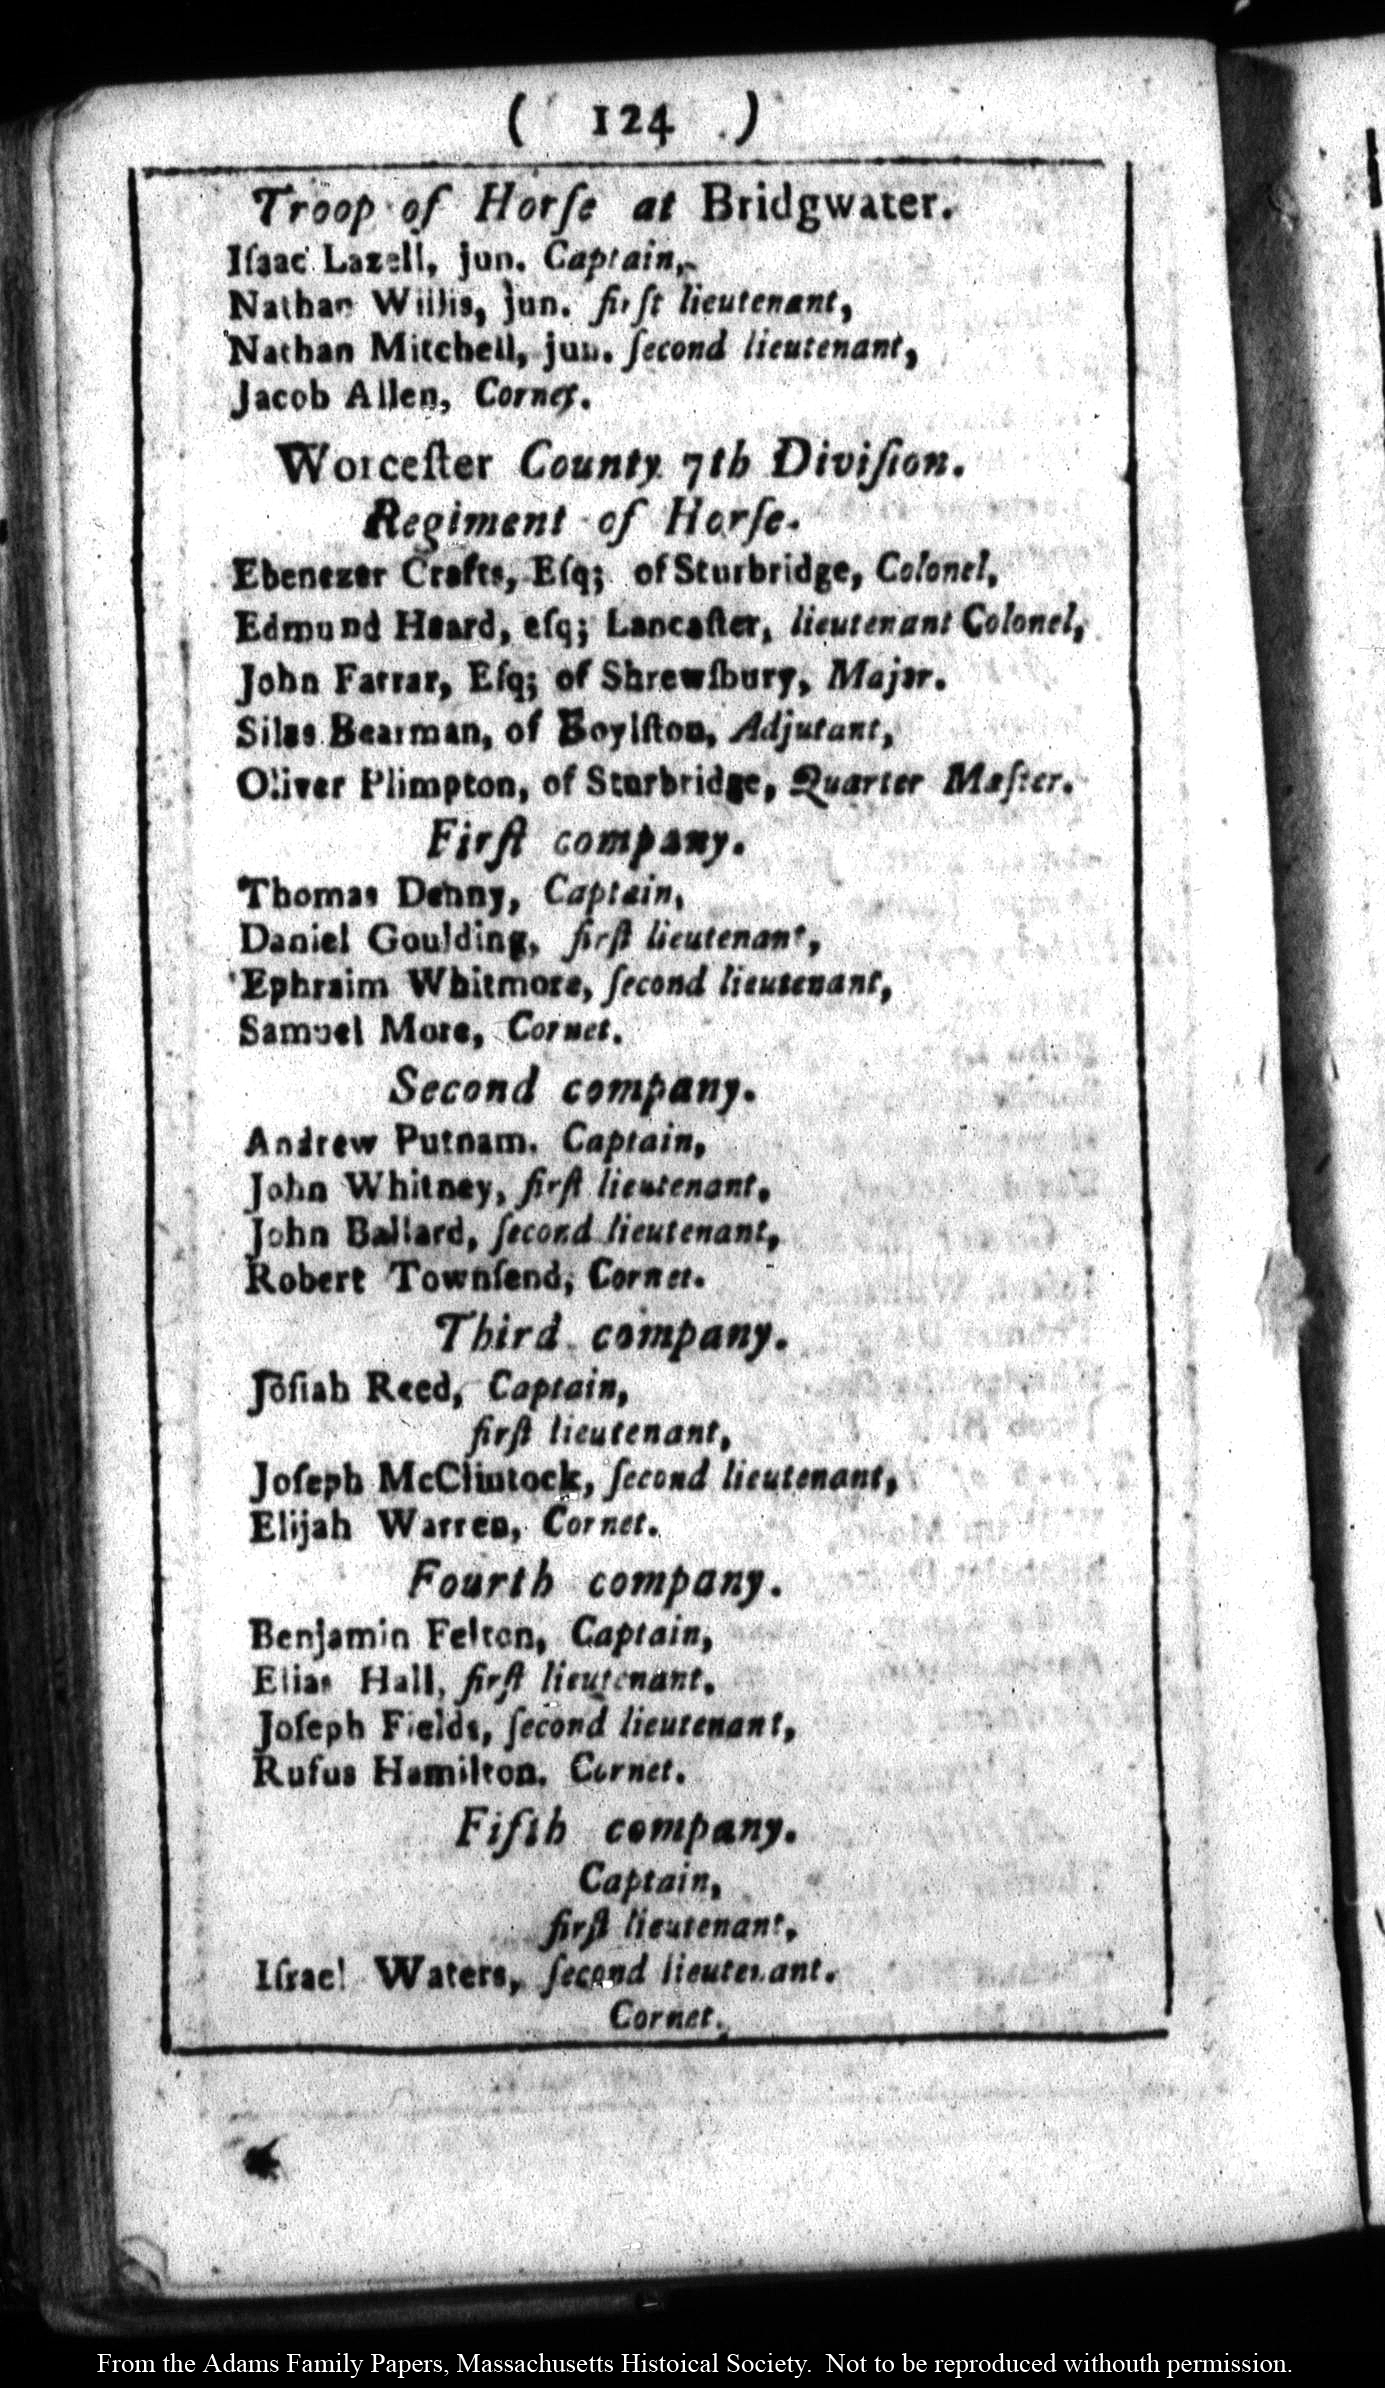 ( 124 )
Troop of Horſe at Bridgwater.
Iſaac Lazell, jun. Captain,
Nathan Willis, jun. firſt lieutenant,
Nathan Mitchell, jun. ſecond lieutenant,
Jacob Allen, Cornet.
Worceſter County 7th Diviſion.
Regiment of Horſe.
Ebenezer Crafts, Eſq; of Sturbridge, Colonel,
Edmund Heard, eſq; Lancaſter, lieutenant Colonel,
John Farrar, Eſq; of Shrewſbury, Major.
Silas Bearman, of Boylſton, Adjutant,
Oliver Plimpton, of Sturbridge, Quarter Maſter.
Firſt company.
Thomas Denny, Captain,
Daniel Goulding, firſt lieutenant,
Ephraim Whitmore, ſecond lieutenant,
Samuel More, Cornet.
Second company.
Andrew Putnam. Captain,
John Whitney, firſt lieutenant,
John Ballard, ſecond lieutenant,
Robert Townſend, Cornet.
Third company.
Joſiah Reed, Captain,
firſt lieutenant,
Joſeph McClintock, ſecond lieutenant,
Elijah Warren, Cornet.
Fourth company.
Benjamin Felton, Captain,
Elias Hall, firſt lieutenant,
Joſeph Fields, ſecond lieutenant,
Rufus Hamilton. Cornet.
Fifth company.
Captain,
firſt lieutenant,
Iſrael Waters, ſecond lieutenant.
Cornet.
From the Adams Family Papers, Massachusetts Histoical Society.  Not to be reproduced withouth permission.